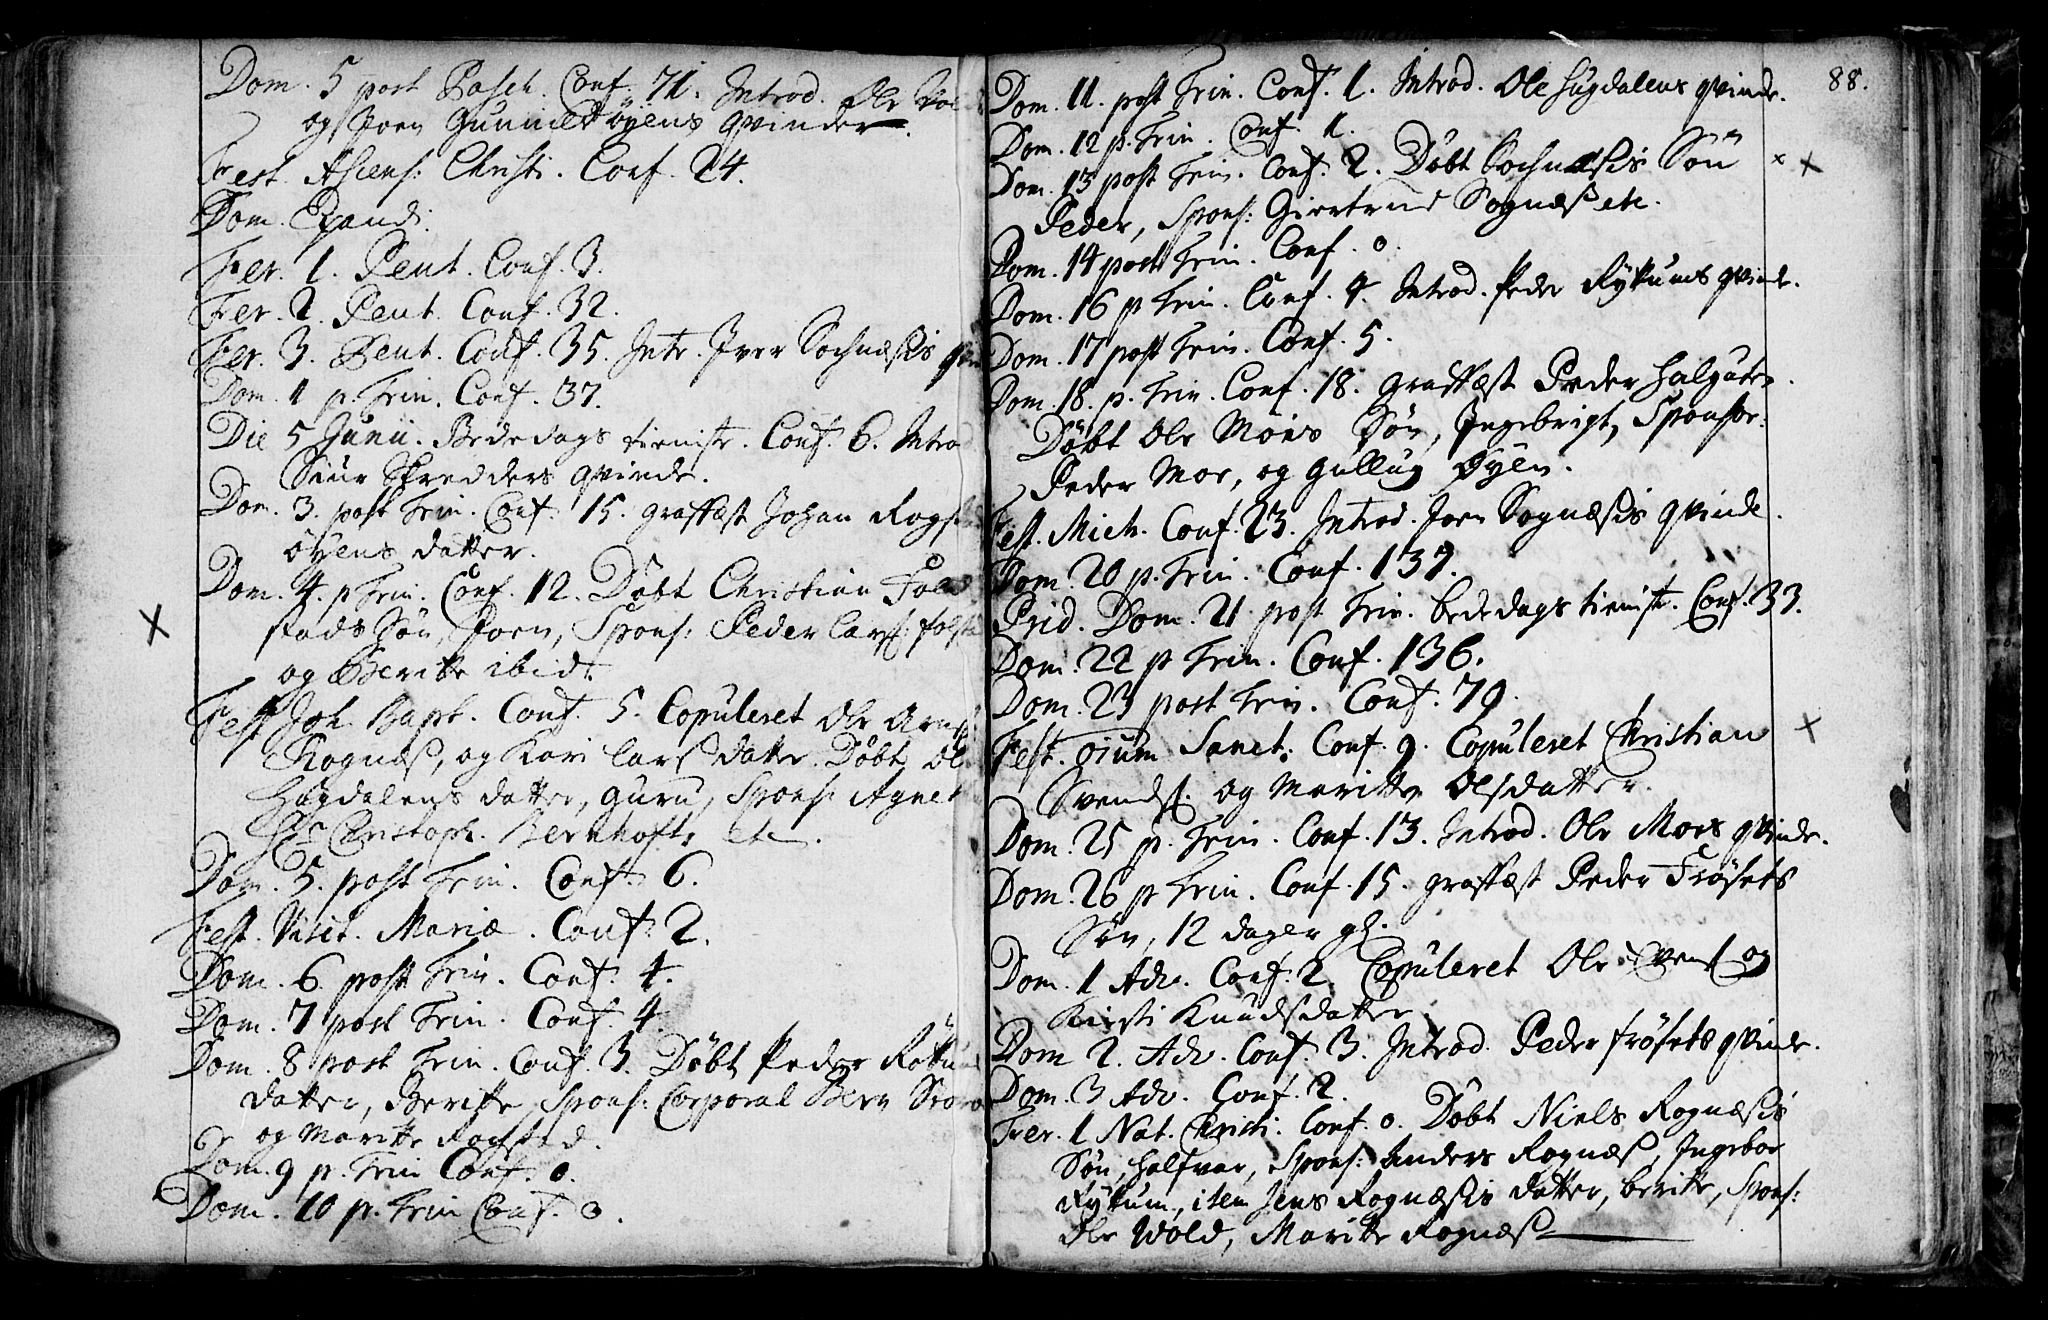 Dom. 5 post Pasch. Conf. 71. Introd. Ole
og Joen Gunnildøyens qvinder.
Fest. Ascens: Christi. Conf. 24.
Dom. Exaudi:
Fer. 1. Pent. Conf. 3.
Fer. 2. Pent. Conf. 32.
Fer. 3. Pent. Conf. 35. Intr. Iver Sochnæsis
Dom. 1 p. Trin. Conf. 37.
Die 5 Junii. Bededags tieniste. Conf. 6. Introd
Siur Skredders qvinde.
Dom. 3. post Trin. Conf. 15. graffæst Johan
øyens datter.
Dom. 4. p Trin. Conf. 12. Døbt Christian
stads Søn, Joen, Spons: Peder Larss:
og Beritte ibid.
Fest Joh. Bapt. Conf. 5. Copuleret Ole
Rognæss, og Kari Larsdatter. Døbt Ol
Hugdalens datter, Guru, Spons: Agnet
Hr Christoph. Bernhofts etc.
Dom. 5. post Trin. Conf. 6.
Fest. Visit. Mariæ. Conf. 2.
Dom. 6 post Trin. Conf. 4.
Dom. 7 post Trin. Conf. 4.
Dom. 8 post Trin. Conf. 3. Døbt Peder
datter, Beritte, Spons: Corporal Bern
og Maritte Rogstad.
Dom. 9 p. Trin Conf. 0.
Dom. 10 p. Trin Conf. 0.
88.
Dom. 11. post Trin. Conf. 1. Introd. Ole Hugdalens qvinde.
Dom. 12 p. Trin. Conf. 1.
Dom. 13 post Trin. Conf. 2. Døbt Sochnæsis Søn
Peder, Spons: Giertrud Sognæss etc.
Dom. 14 post Trin. Conf. 0.
Dom. 16 p Trin. Conf. 4. Introd. Peder Rykums qvinde.
Dom. 17 post Trin. Conf. 5.
Dom. 18. p. Trin. Conf. 18. graffæst Peder
Døbt Ole Moes Søn, Ingebrigt, Sponsor:
Peder Moe, og Gullug Øyen.
Fest. Mich. Conf. 23. Introd. Joen Sognæsis qvinde.
Dom. 20 p. Trin. Conf. 137.
Prid. Dom. 21 post Trin. bededags tieniste. Conf. 33.
Dom. 22 p Trin. Conf. 136.
Dom. 23 post Trin. Conf. 79.
Fest. oium Sanct: Conf. 9. Copuleret Christian
Svends: og Maritte Olsdatter.
Dom. 25 p. Trin. Conf. 13. Introd. Ole Moes qvinde.
Dom. 26 p Trin. Conf. 15. graffæst Peder Frøsets
Søn, 12 dager gl.
Dom. 1 Adv. Conf. 2. Copuleret Ole og
Kirsti Knudsdatter.
Dom 2. Adv. Conf. 3. Introd. Peder Frøsets qvinde.
Dom. 3 Adv. Conf. 2.
Fer. 1 Nat. Christi. Conf. 0. Døbt Niels Rognæsis
Søn, Halfvar, Spons: Anders Rognæss, Ingebor
Rykum, item Jens Rognæsis datter, Beritte, Spons:
Ole Wold, Maritte Rognæss